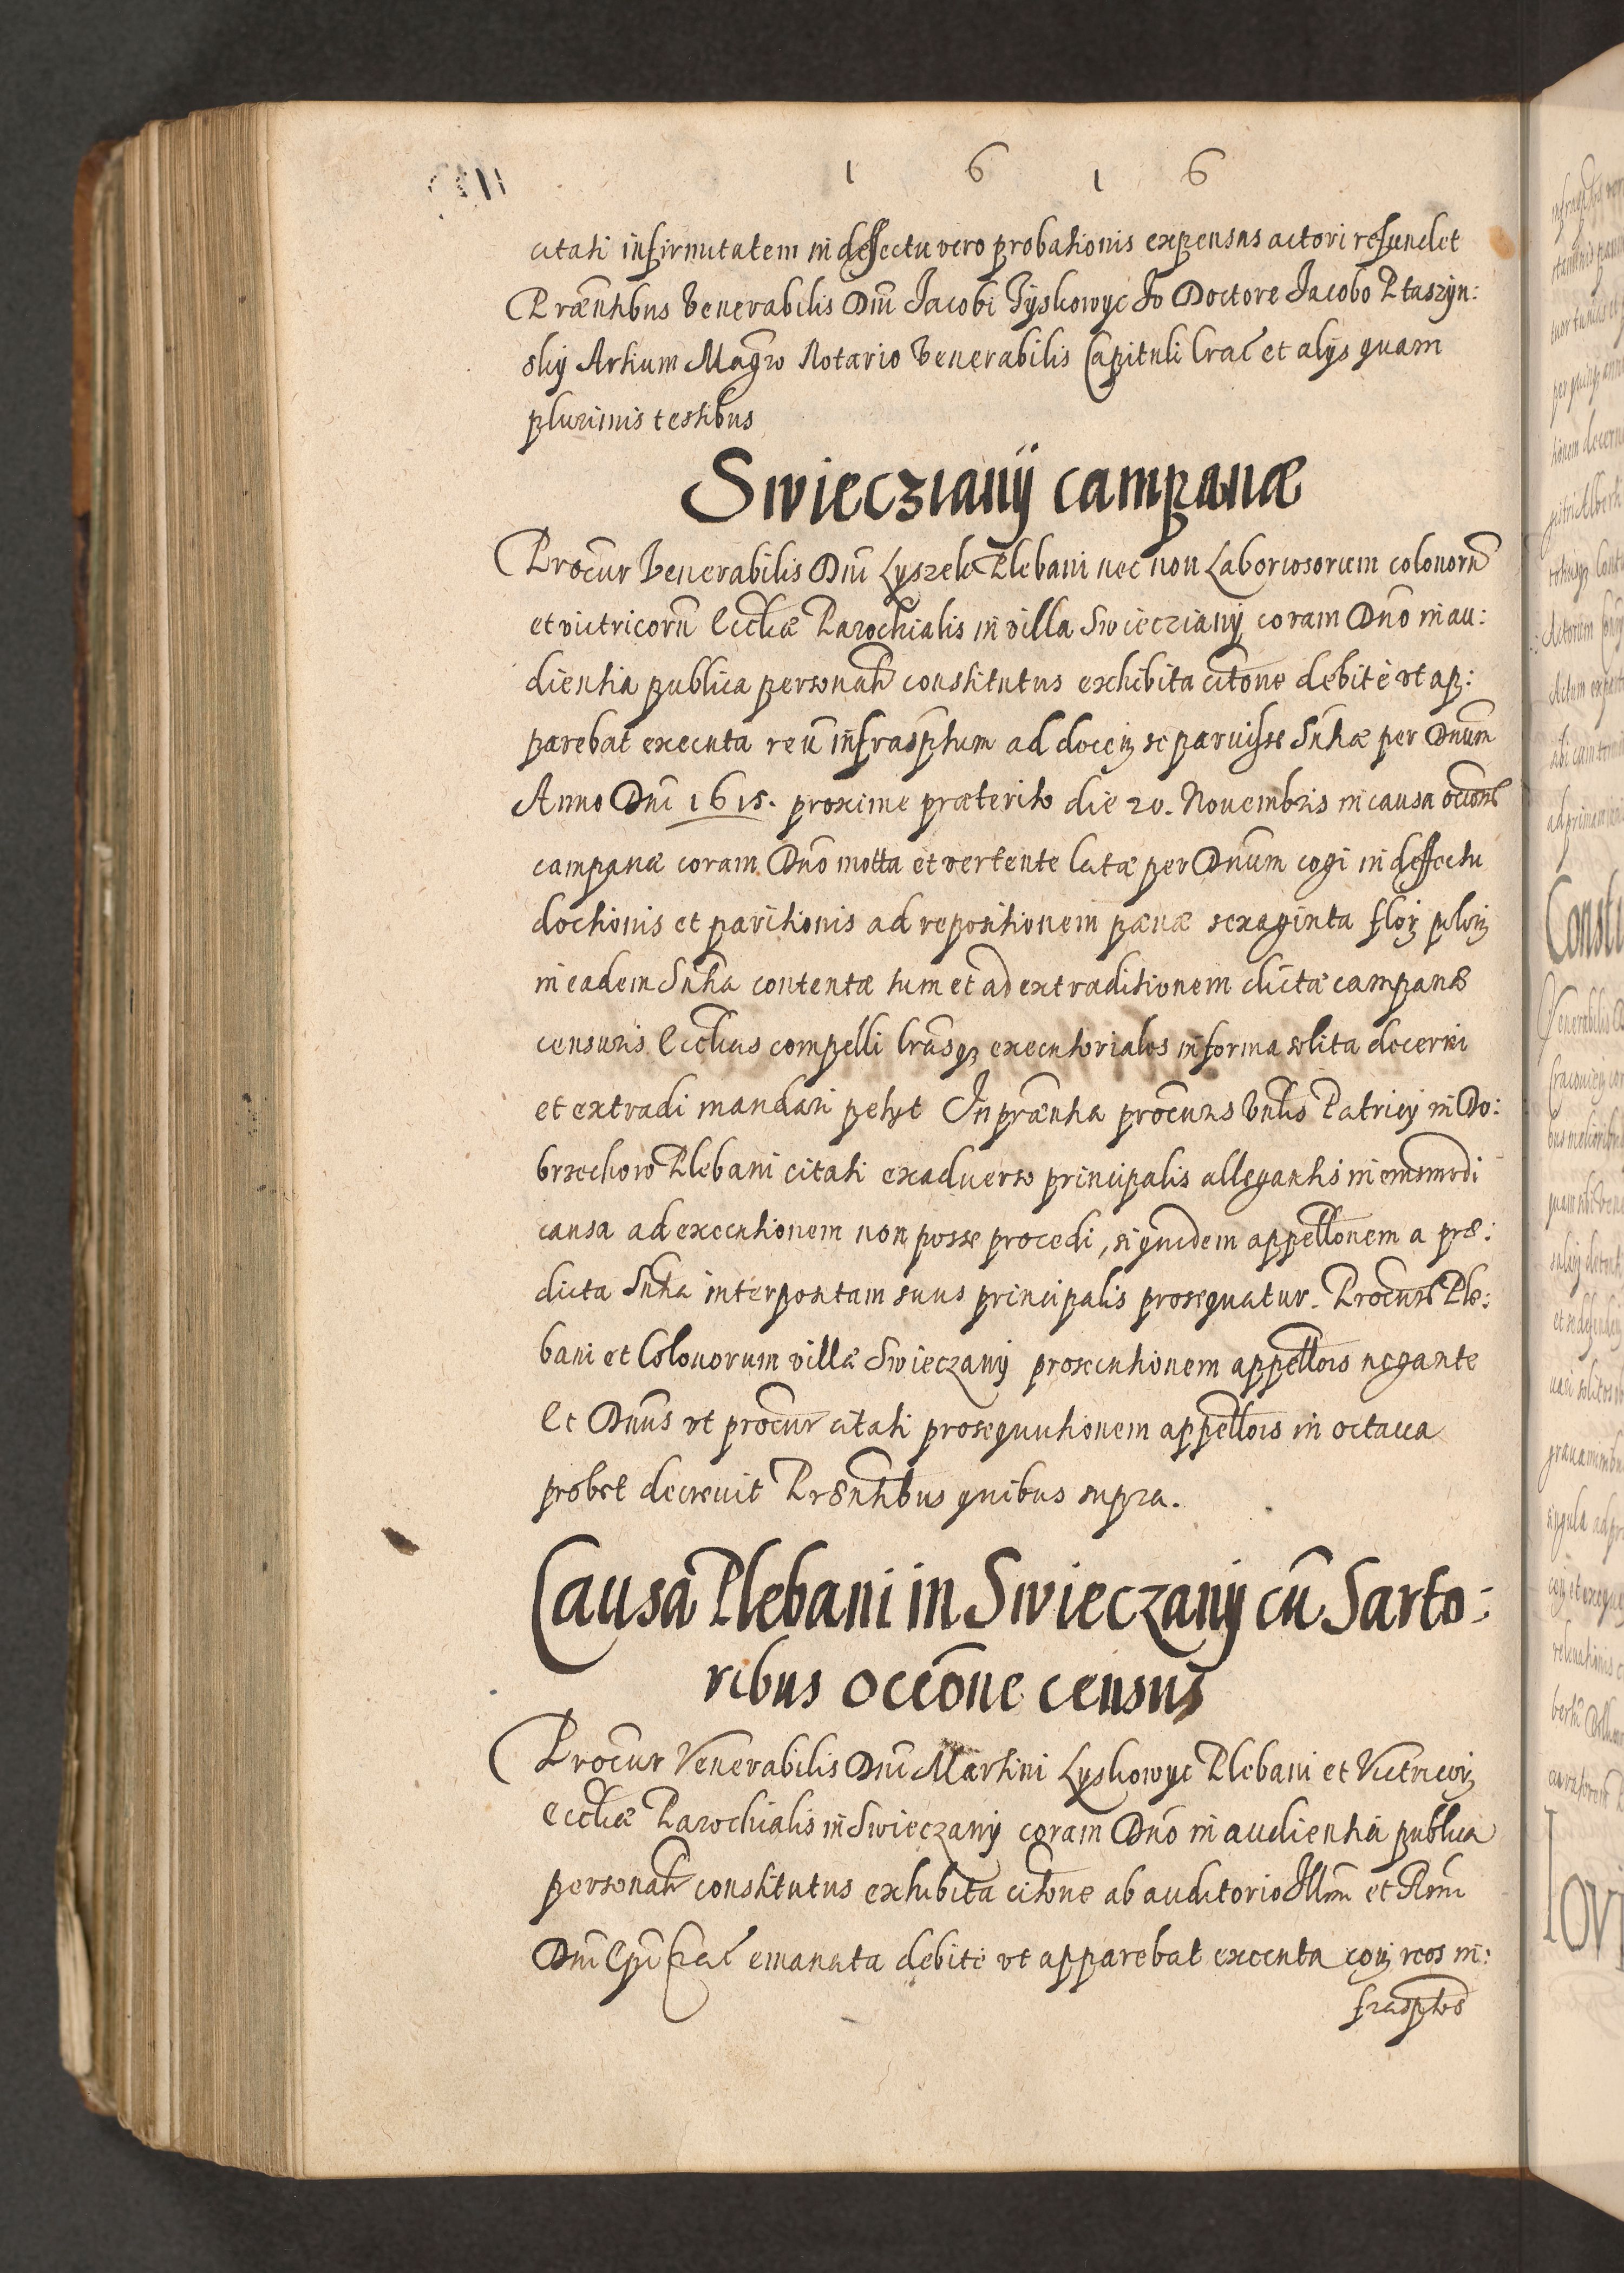 1 6 1 6
citati infirmitatem in deffectu vero probationis expensas actori refundet
Præntibus Venerabilis Dni Jacobi Jyskowyc Jo Doctore Jacobo Ptaszyn:
skij Artium Magro Notario Venerabilis Capituli Crac et alijs quam
plurimis testibus
Swiecziany campanæ
Procur Venerabilis Dni Lyszek Plebani nec non Laboriosorum colonoru
et victricoru Eccliæ Parochialis in villa Swiecziany coram Dno in au:
dientia publica personalr constitutus exhibita citone debite vt ap:
parebat executa reu infrasptum ad docen se paruisse Sntiæ per Dnum
Anno Dni 1615. proxime præterito die 20. Novembris in causa occons
campanæ coram Dno motta et vertente latæ per Dnum cogi in deffectu
doctionis et paritionis ad repositionem pænæ sexaginta flor polon
in eadem Sntia contentæ tum et ad extraditionem dictæ campanæ
censuris Ecclicis compelli lrasq executoriales in forma solita decerni
et extradi mandari petijt In præntia procuris Vnlis Patricij in Do:
brzechow Plebani citati ex aduerso principalis allegantis in eiusmodi
causa ad executionem non posse procedi, siquidem appellonem a præ:
dicta Sntia interpositam suus principalis prosequatur. Procure Ple:
bani et Colonorum villæ Swieczany prosecutionem appellois negante
Et Dnus vt procur citati prosequutionem appellois in octaua
probet decreuit Præntibus quibus supra.
Causa Plebani in Swieczany cu Sarto:
ribus occone census
Procur Venerabilis Dni Martini Lyskowyc Plebani et Victricor
Eccliæ Parochialis in Swieczany coram Dno in audientia publica
personalr constitutus exhibita citone ab auditorio Illmi et Rmi
Dni Epi Crac emanata debite vt apparebat executa con reos in:
frasptos